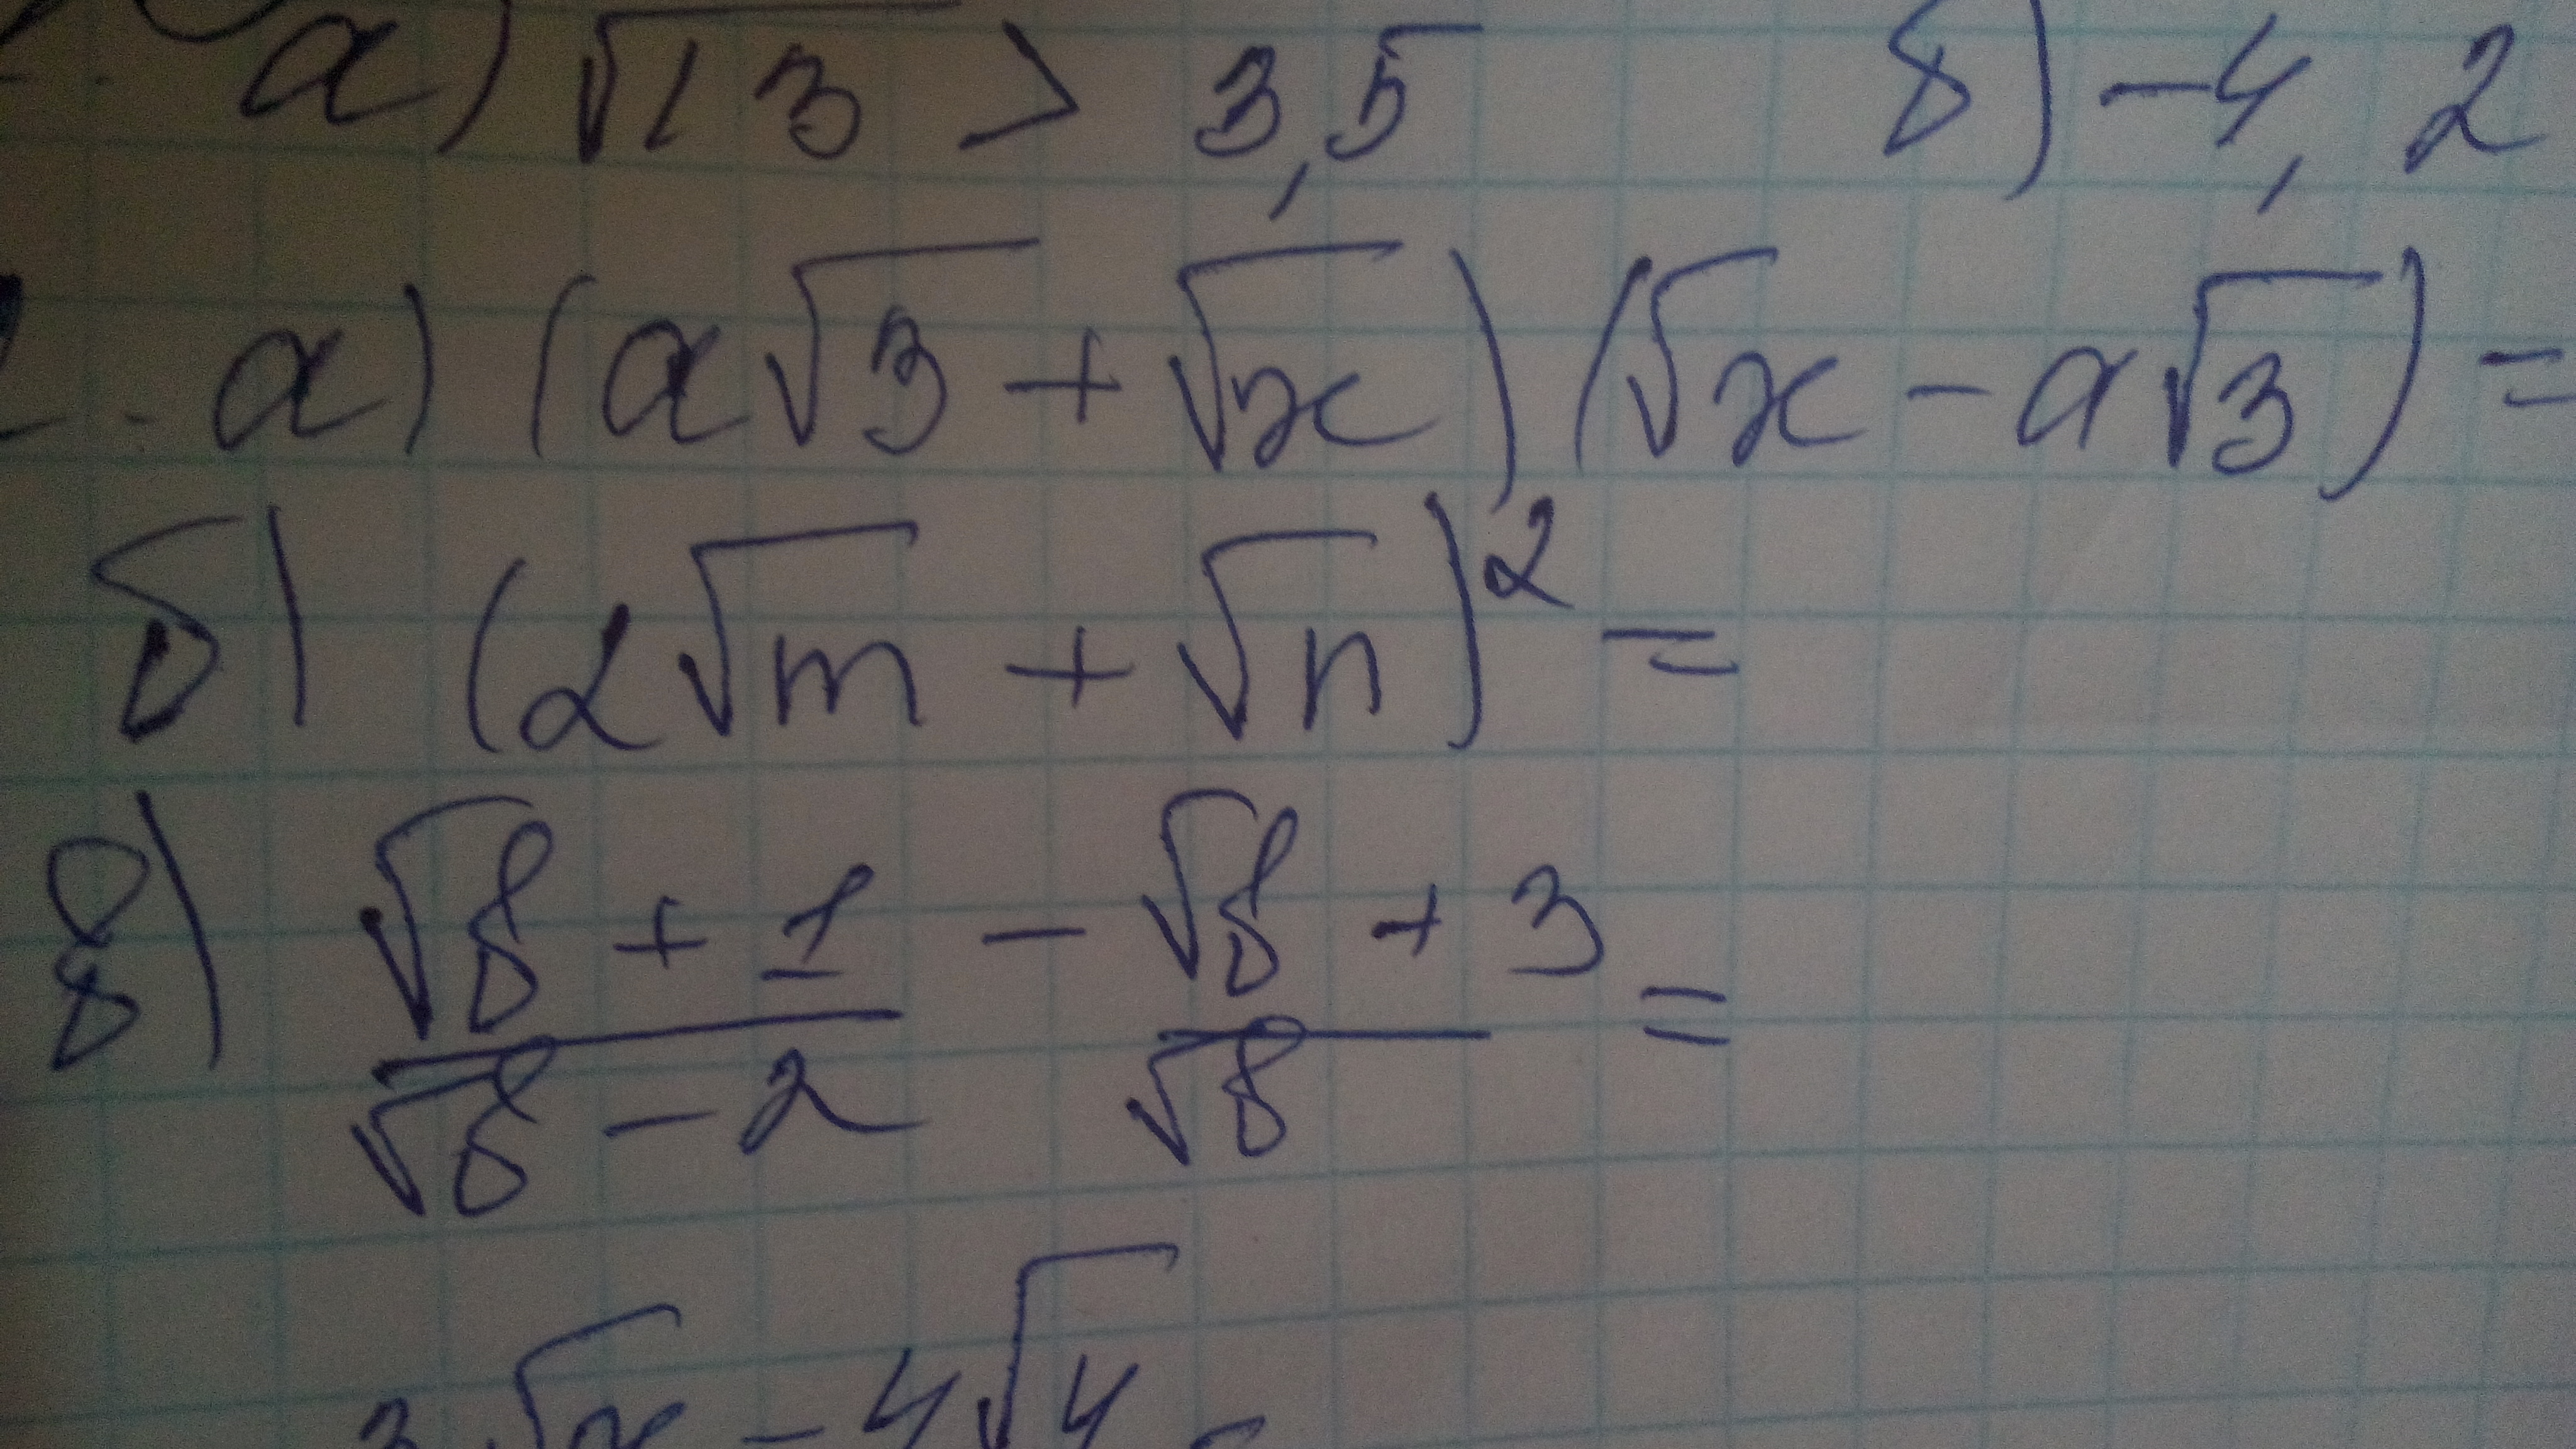 а) √13 > 3,5 в) -4,2
а) (a√3 + √x)(√x - a√3) =
б) (2√m + √n)² =
в) (√8 + 1)/(√8 - 2) - (√8 + 3)/√8 =
3√x - 4√4